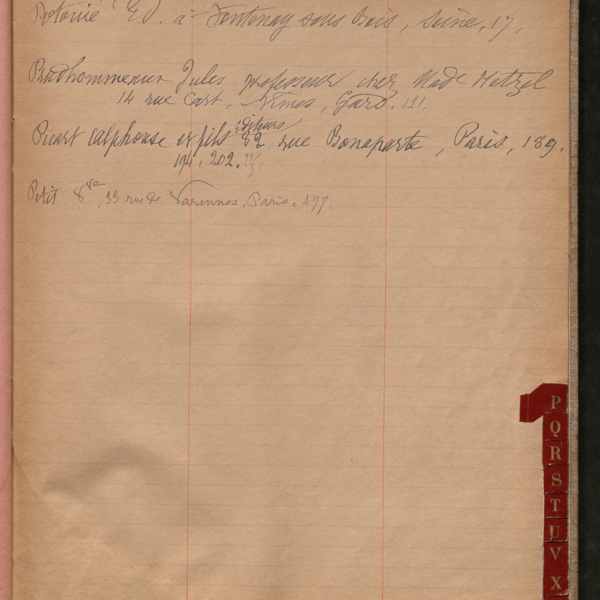 Potonié Ed. à Fontenay sous Bois, Seine, 17.
Prudhommeaux Jules professeur chez Made Hetzel
14 rue Cart. Nîmes, Gard. 121.
éditeurs
Picart Alphonse et fils 82 rue Bonaparte, Paris, 189.
194. 202.
Petit 33 rue de Varennes, Paris.
P
Q
R
S
T
U
V
X